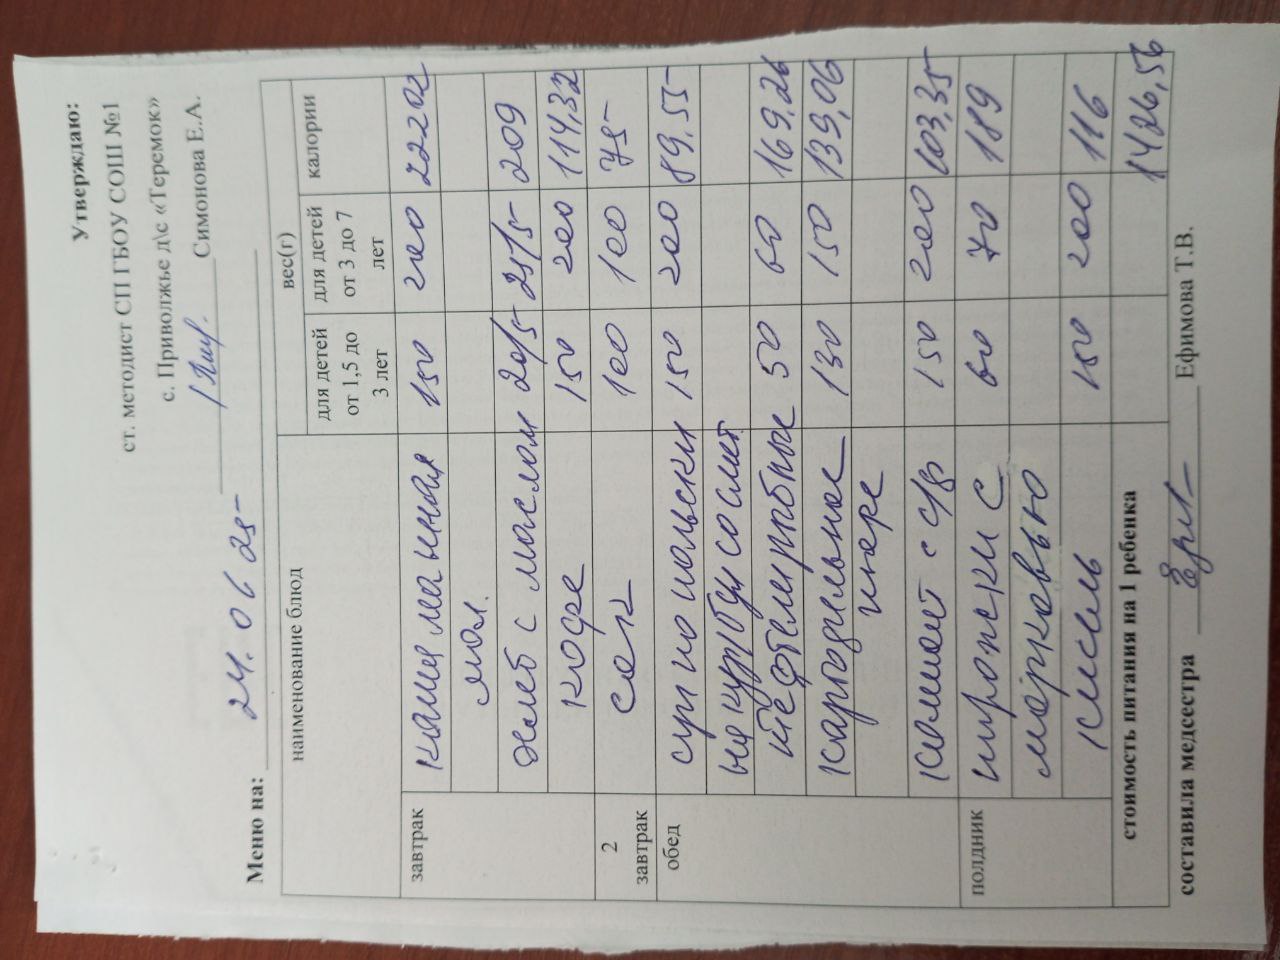 Утверждаю:
ст. методист СП ГБОУ СОШ №1
с. Приволжье д\с «Теремок»
Симонова Е.А.
Меню на: 24.06 25
наименование блюд вес(г)
для детей от 1,5 до 3 лет для детей от 3 до 7 лет калории
завтрак каша манная 150 200 222,02
мол.
хлеб с маслом 20/5 25/5 209
кофе 150 200 114,32
2 завтрак сок 100 100 75
обед суп польский 150 200 89,55
на кур/бул со смет
тефтели рыбные 50 60 169,26
картофельное 130 150 139,06
пюре
компот с с/ф 150 200 103,35
полдник пирожки с 60 70 189
морковью
кисель 150 200 116
стоимость питания на 1 ребенка 1426,56
составила медсестра Ефимова Т.В.